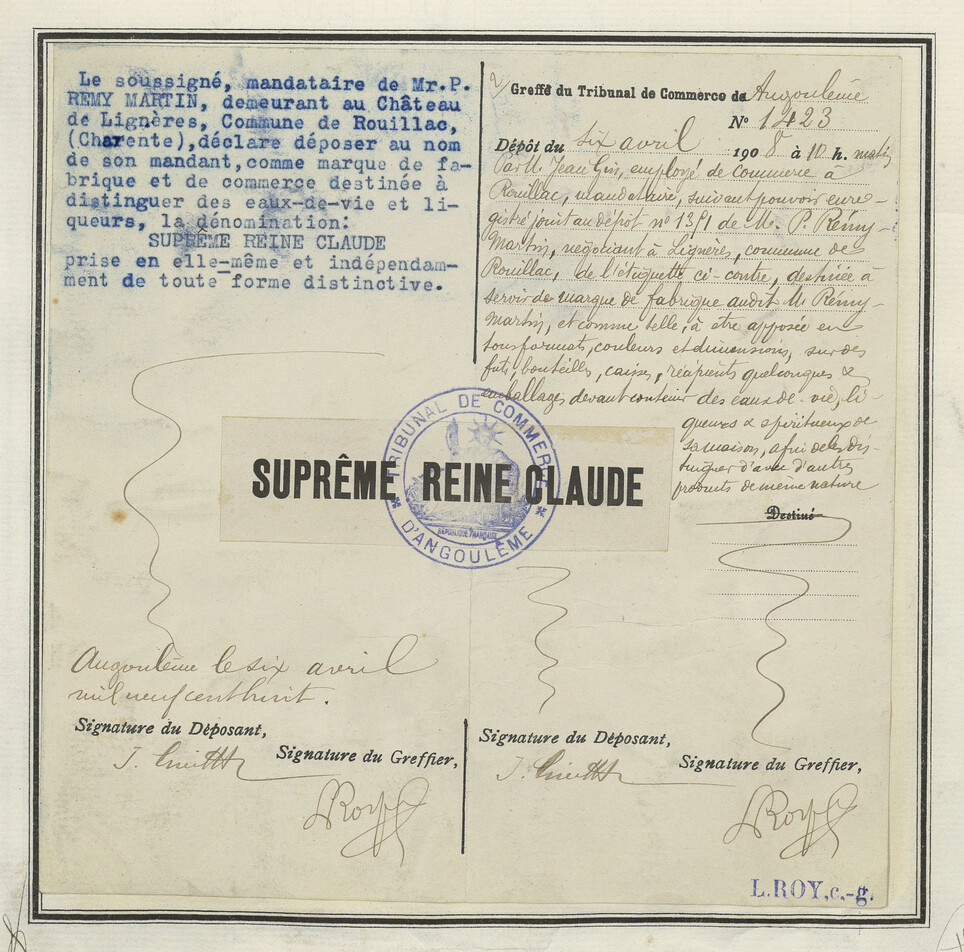 Le soussigné, mandataire de Mr.P.
REMY MARTIN, demeurant au Château
de Lignères, Commune de Rouillac,
(Charente),déclare déposer au nom
de son mandant,comme marque de fa-
brique et de commerce destinée à
distinguer des eaux-de-vie et li-
queurs, la dénomination:
SUPRÊME REINE CLAUDE
prise en elle-même et indépendam-
ment de toute forme distinctive.
2/ Greffe du Tribunal de Commerce de Angoulême
N° 1423
Dépôt du six avril 1908 à 10 h. matin
Par M. Jean , employé de commerce à
Rouillac, mandataire, suivant pouvoir enre-
gistré joint au dépôt n° 1351 de M. P. Rémy-
Martin, négociant à Lignères, commune de
Rouillac, de l'étiquette ci-contre, destinée à
servir de marque de fabrique audit M. Rémy-
Martin, et comme telle, à être apposée en
tous formats, couleurs et dimensions, sur des
futs, bouteilles, caisses, récipients quelconques &
emballages devant contenir des eaux-de-vie, li-
queurs & spiritueux de
sa maison, afin de les dis-
tinguer d'avec d'autres
produits de même nature
Destiné
SUPRÊME REINE CLAUDE
TRIBUNAL DE COMMERCE
D'ANGOULÊME
RÉPUBLIQUE FRANÇAISE
Angoulême le six avril
mil neuf cent huit.
Signature du Déposant,
Signature du Greffier,
Signature du Déposant,
Signature du Greffier,
L.ROY,c.-g.